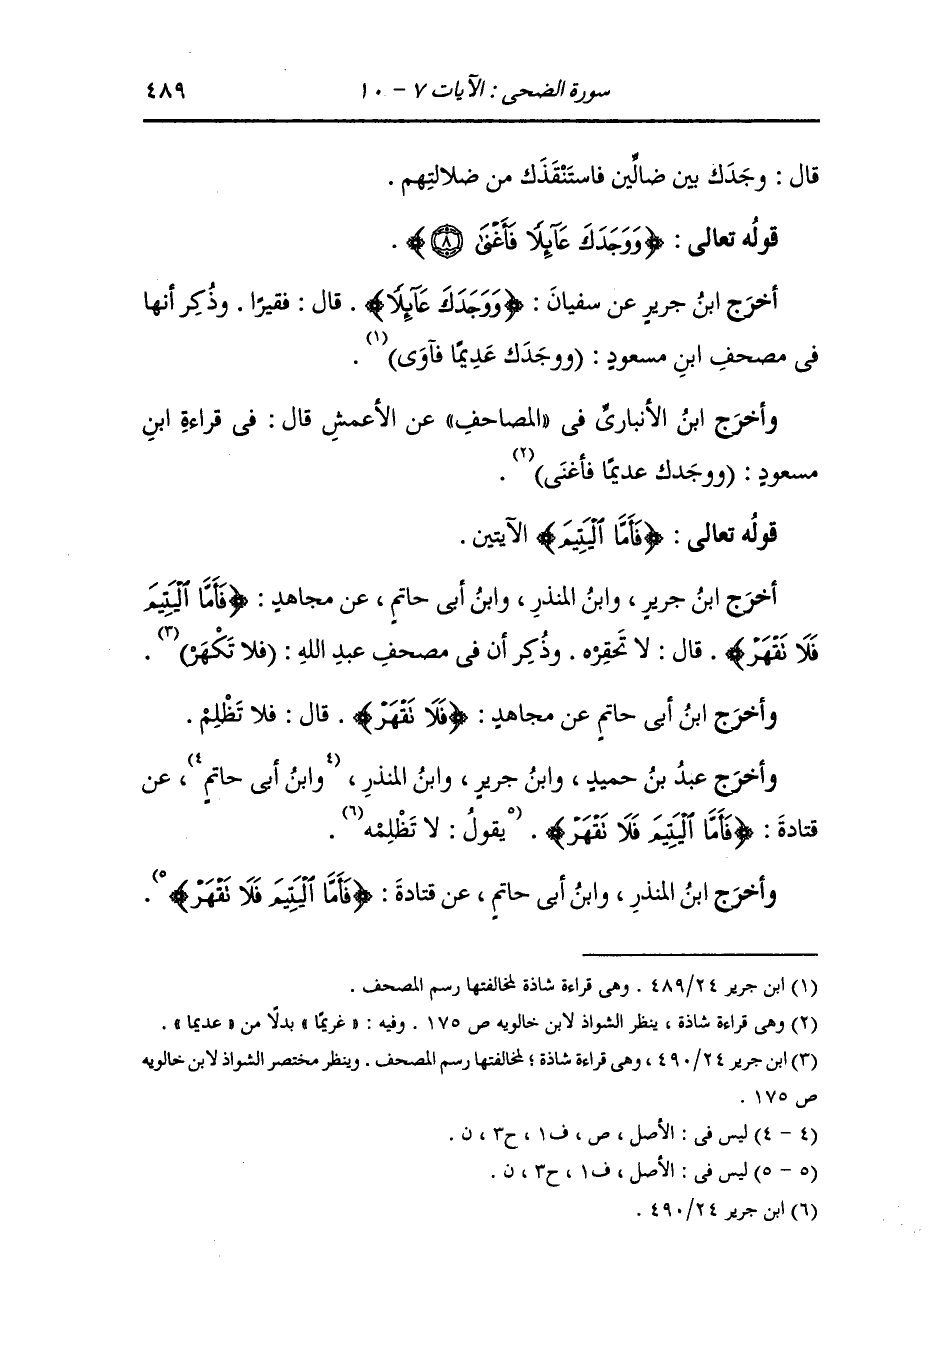 سورة الضحى : الآيات ٧ - ١٠ ٤٨٩
قال : وجَدَك بين ضالِّين فاستَنْقَذَك من ضلالتِهم .
قولُه تعالى : ﴿وَوَجَدَكَ عَآئِلًا فَأَغْنَىٰ ۝٨﴾ .
أخرَج ابنُ جريرٍ عن سفيانَ : ﴿وَوَجَدَكَ عَآئِلًا﴾ . قال : فقيرًا . وذُكِر أنها
فى مصحفِ ابنِ مسعودٍ : (ووجَدَك عَدِيمًا فآوَى)(١) .
وأخرَج ابنُ الأنبارىِّ فى «المصاحفِ» عن الأعمشِ قال : فى قراءةِ ابنِ
مسعودٍ : (ووجَدك عديمًا فأغنَى)(٢) .
قولُه تعالى : ﴿فَأَمَّا ٱلْيَتِيمَ﴾ الآيتين .
أخرَج ابنُ جريرٍ ، وابنُ المنذرِ ، وابنُ أبى حاتمٍ ، عن مجاهدٍ : ﴿فَأَمَّا ٱلْيَتِيمَ
فَلَا تَقْهَرْ﴾ . قال : لا تَحقِرْه . وذُكِر أن فى مصحفِ عبدِ اللهِ : (فلا تَكْهَرْ)(٣) .
وأخرَج ابنُ أبى حاتمٍ عن مجاهدٍ : ﴿فَلَا تَقْهَرْ﴾ . قال : فلا تَظْلِمْ .
وأخرَج عبدُ بنُ حميدٍ ، وابنُ جريرٍ ، وابنُ المنذرِ ، (٤وابنُ أبى حاتمٍ٤) ، عن
قتادةَ : ﴿فَأَمَّا ٱلْيَتِيمَ فَلَا تَقْهَرْ﴾ . (٥يقولُ : لا تَظْلِمْه(٦) .
وأخرَج ابنُ المنذرِ ، وابنُ أبى حاتمٍ ، عن قتادةَ : ﴿فَأَمَّا ٱلْيَتِيمَ فَلَا تَقْهَرْ﴾٥) .
(١) ابن جرير ٢٤/٤٨٩ . وهى قراءة شاذة لمخالفتها رسم المصحف .
(٢) وهى قراءة شاذة ، ينظر الشواذ لابن خالويه ص ١٧٥ . وفيه : «غريمًا» بدلًا من «عديما» .
(٣) ابن جرير ٢٤/٤٩٠ ، وهى قراءة شاذة ؛ لمخالفتها رسم المصحف . وينظر مختصر الشواذ لابن خالويه
ص ١٧٥ .
(٤ - ٤) ليس فى : الأصل ، ص ، ف١ ، ح٣ ، ن .
(٥ - ٥) ليس فى : الأصل ، ف١ ، ح٣ ، ن .
(٦) ابن جرير ٢٤/٤٩٠ .